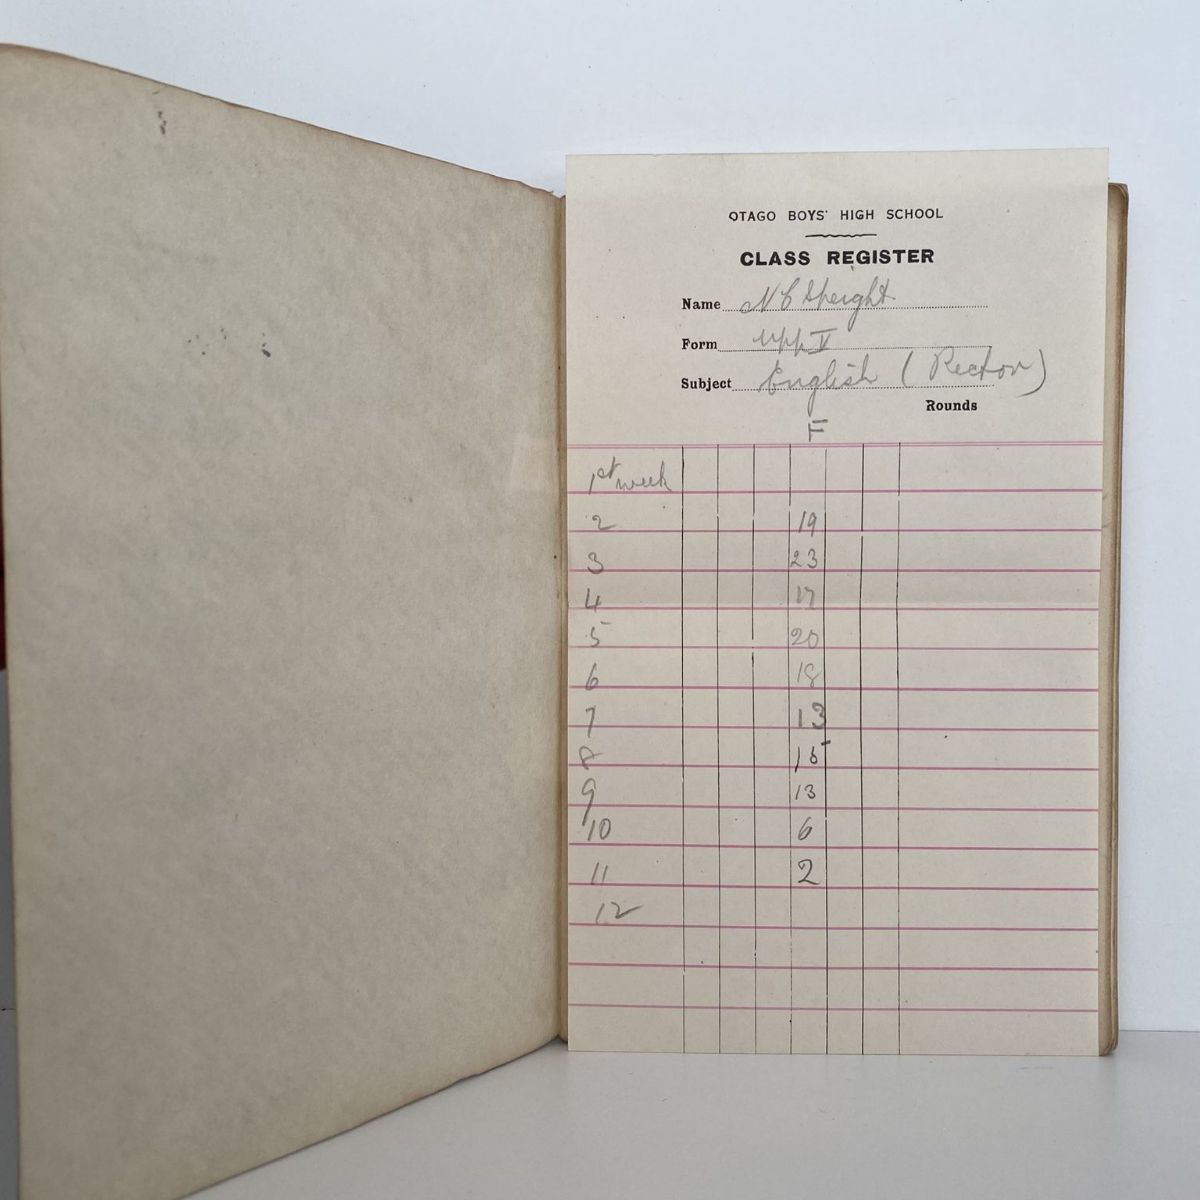 OTAGO BOYS' HIGH SCHOOL
CLASS REGISTER
Name N C Speight
Form Upp V
Subject English (Rector)
Rounds
F
1st week
2 19
3 23
4 17
5 20
6 18
7 13
8 15
9 13
10 6
11 2
12